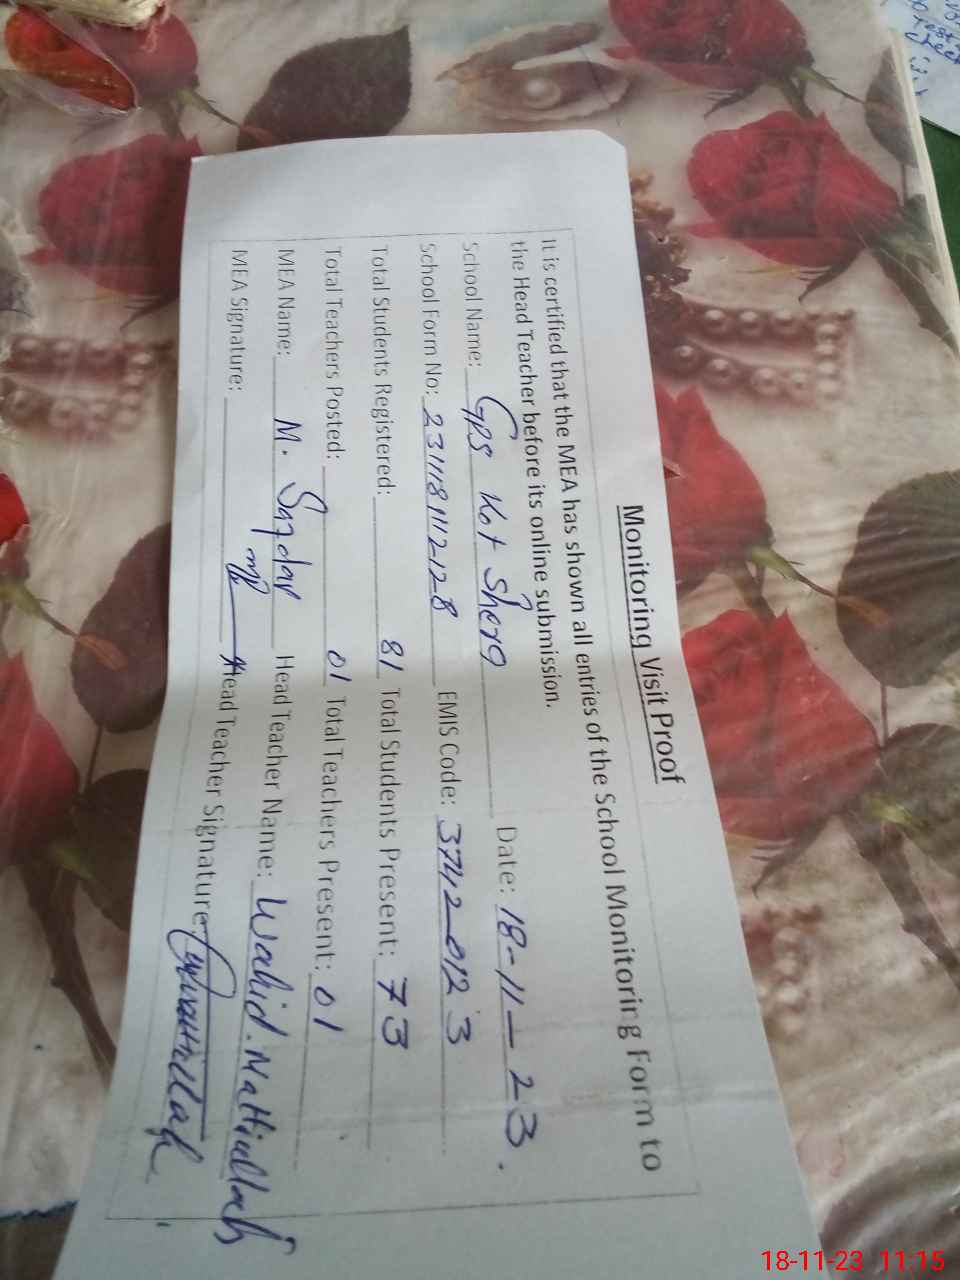 Monitoring Visit Proof
It is certified that the MEA has shown all entries of the School Monitoring Form to
the Head Teacher before its online submission.
School Name: GPS Kot Shera Date: 18-11-23.
School Form No: EMIS Code: 37412-012 3
Total Students Registered: 81 Total Students Present: 73
Total Teachers Posted: 01 Total Teachers Present: 01
MEA Name: M. Safdar Head Teacher Name: Wahid. Matiullah
MEA Signature: Head Teacher Signature:
18-11-23 11:15